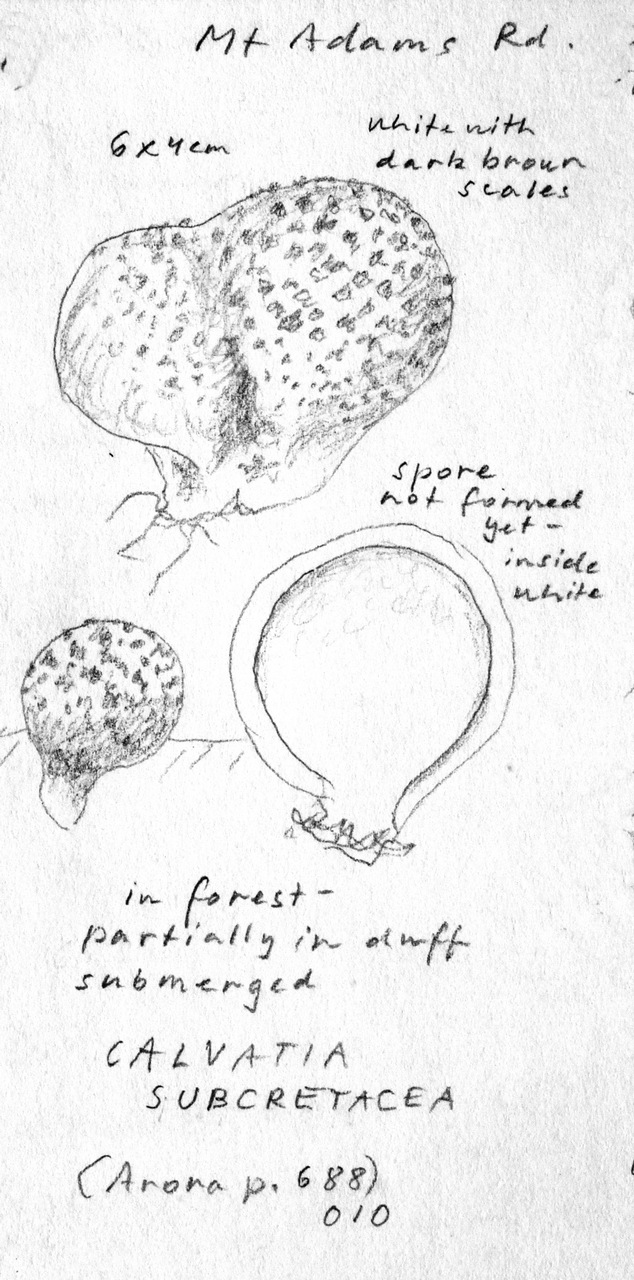 Mt Adams Rd.
6 x 4 cm
white with
dark brown
scales
spore
not formed
yet -
inside
white
in forest -
partially in duff
submerged
CALVATIA
SUBCRETACEA
(Arora p. 688)
010